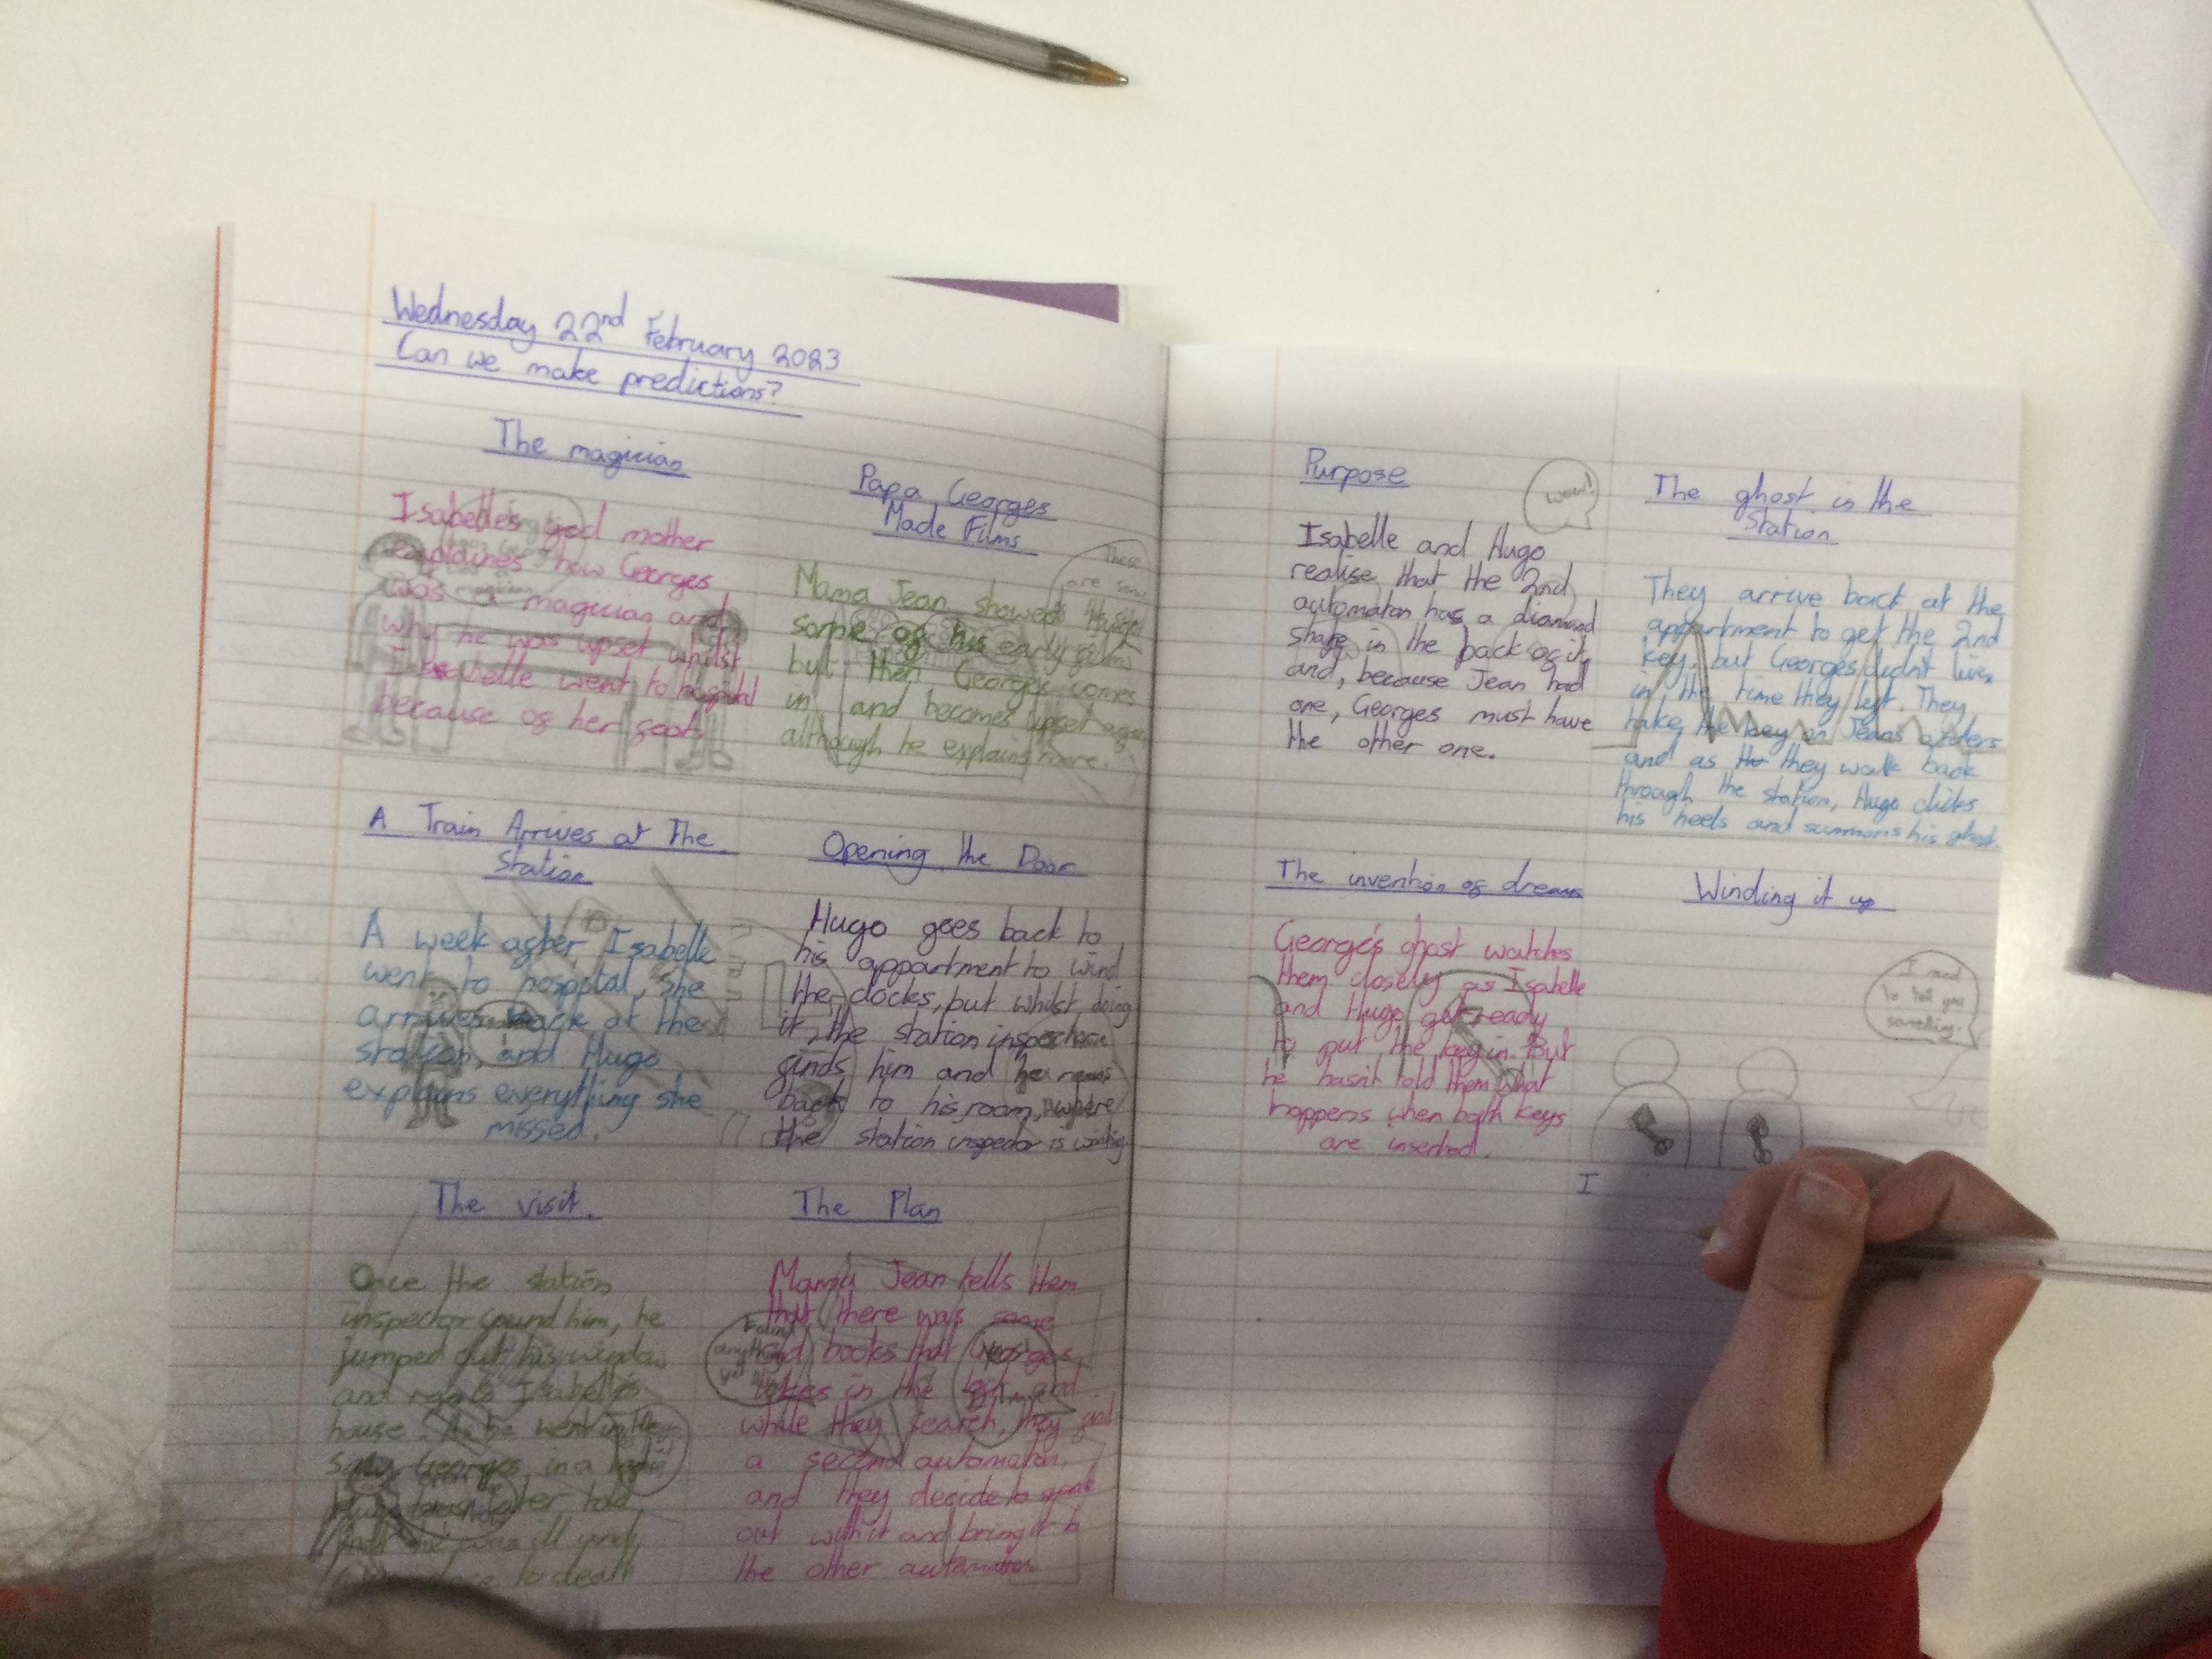 Wednesday 22nd February 2023
Can we make predictions?
The magician
Isabelle's god mother
explaines how Georges
was a magician and
why he was upset whilst
Isabelle went to hospital
because of her foot.
Papa Georges
Made Films
These
are some
Mama Jean showed
some of his early films
but then Georges comes
in and becomes upset again
although he explains more.
A Train Arrives at The
Station
A week after Isabelle
went to hospital, she
arrives back at the
station, and Hugo
explains everything she
missed.
Opening the Door
Hugo goes back to
his appartment to wind
the clocks, but whilst doing
it, the station inspector
finds him and he runs
back to his room, where
the station inspector is waiting
The visit.
Once the station
inspector found him, he
jumped out his window
and ran to Isabelle's
house. As he went in he
saw Georges in a
later told
he was ill and
to death
The Plan
Mama Jean tells them
that there was some
old books that Georges
in the and
while they search, they find
a second automaton,
and they decide to sneak
out with it and bring it to
the other automaton.
Found
anything
yet
Purpose
wow!
Isabelle and Hugo
realise that the 2nd
automaton has a diamond
shape in the back of it,
and, because Jean had
one, Georges must have
the other one.
The ghost in the
Station
They arrive back at the
appartment to get the 2nd
key, but Georges didn't live
in the time they left. They
take the key on Jeans orders
and as they walk back
through the station, Hugo clicks
his heels and summons his ghost.
The invention of dreams
George's ghost watches
them closely as Isabelle
and Hugo get ready
to put the key in. But
he hasn't told them what
happens when both keys
are inserted.
Winding it up
I need
to tell you
something.
I